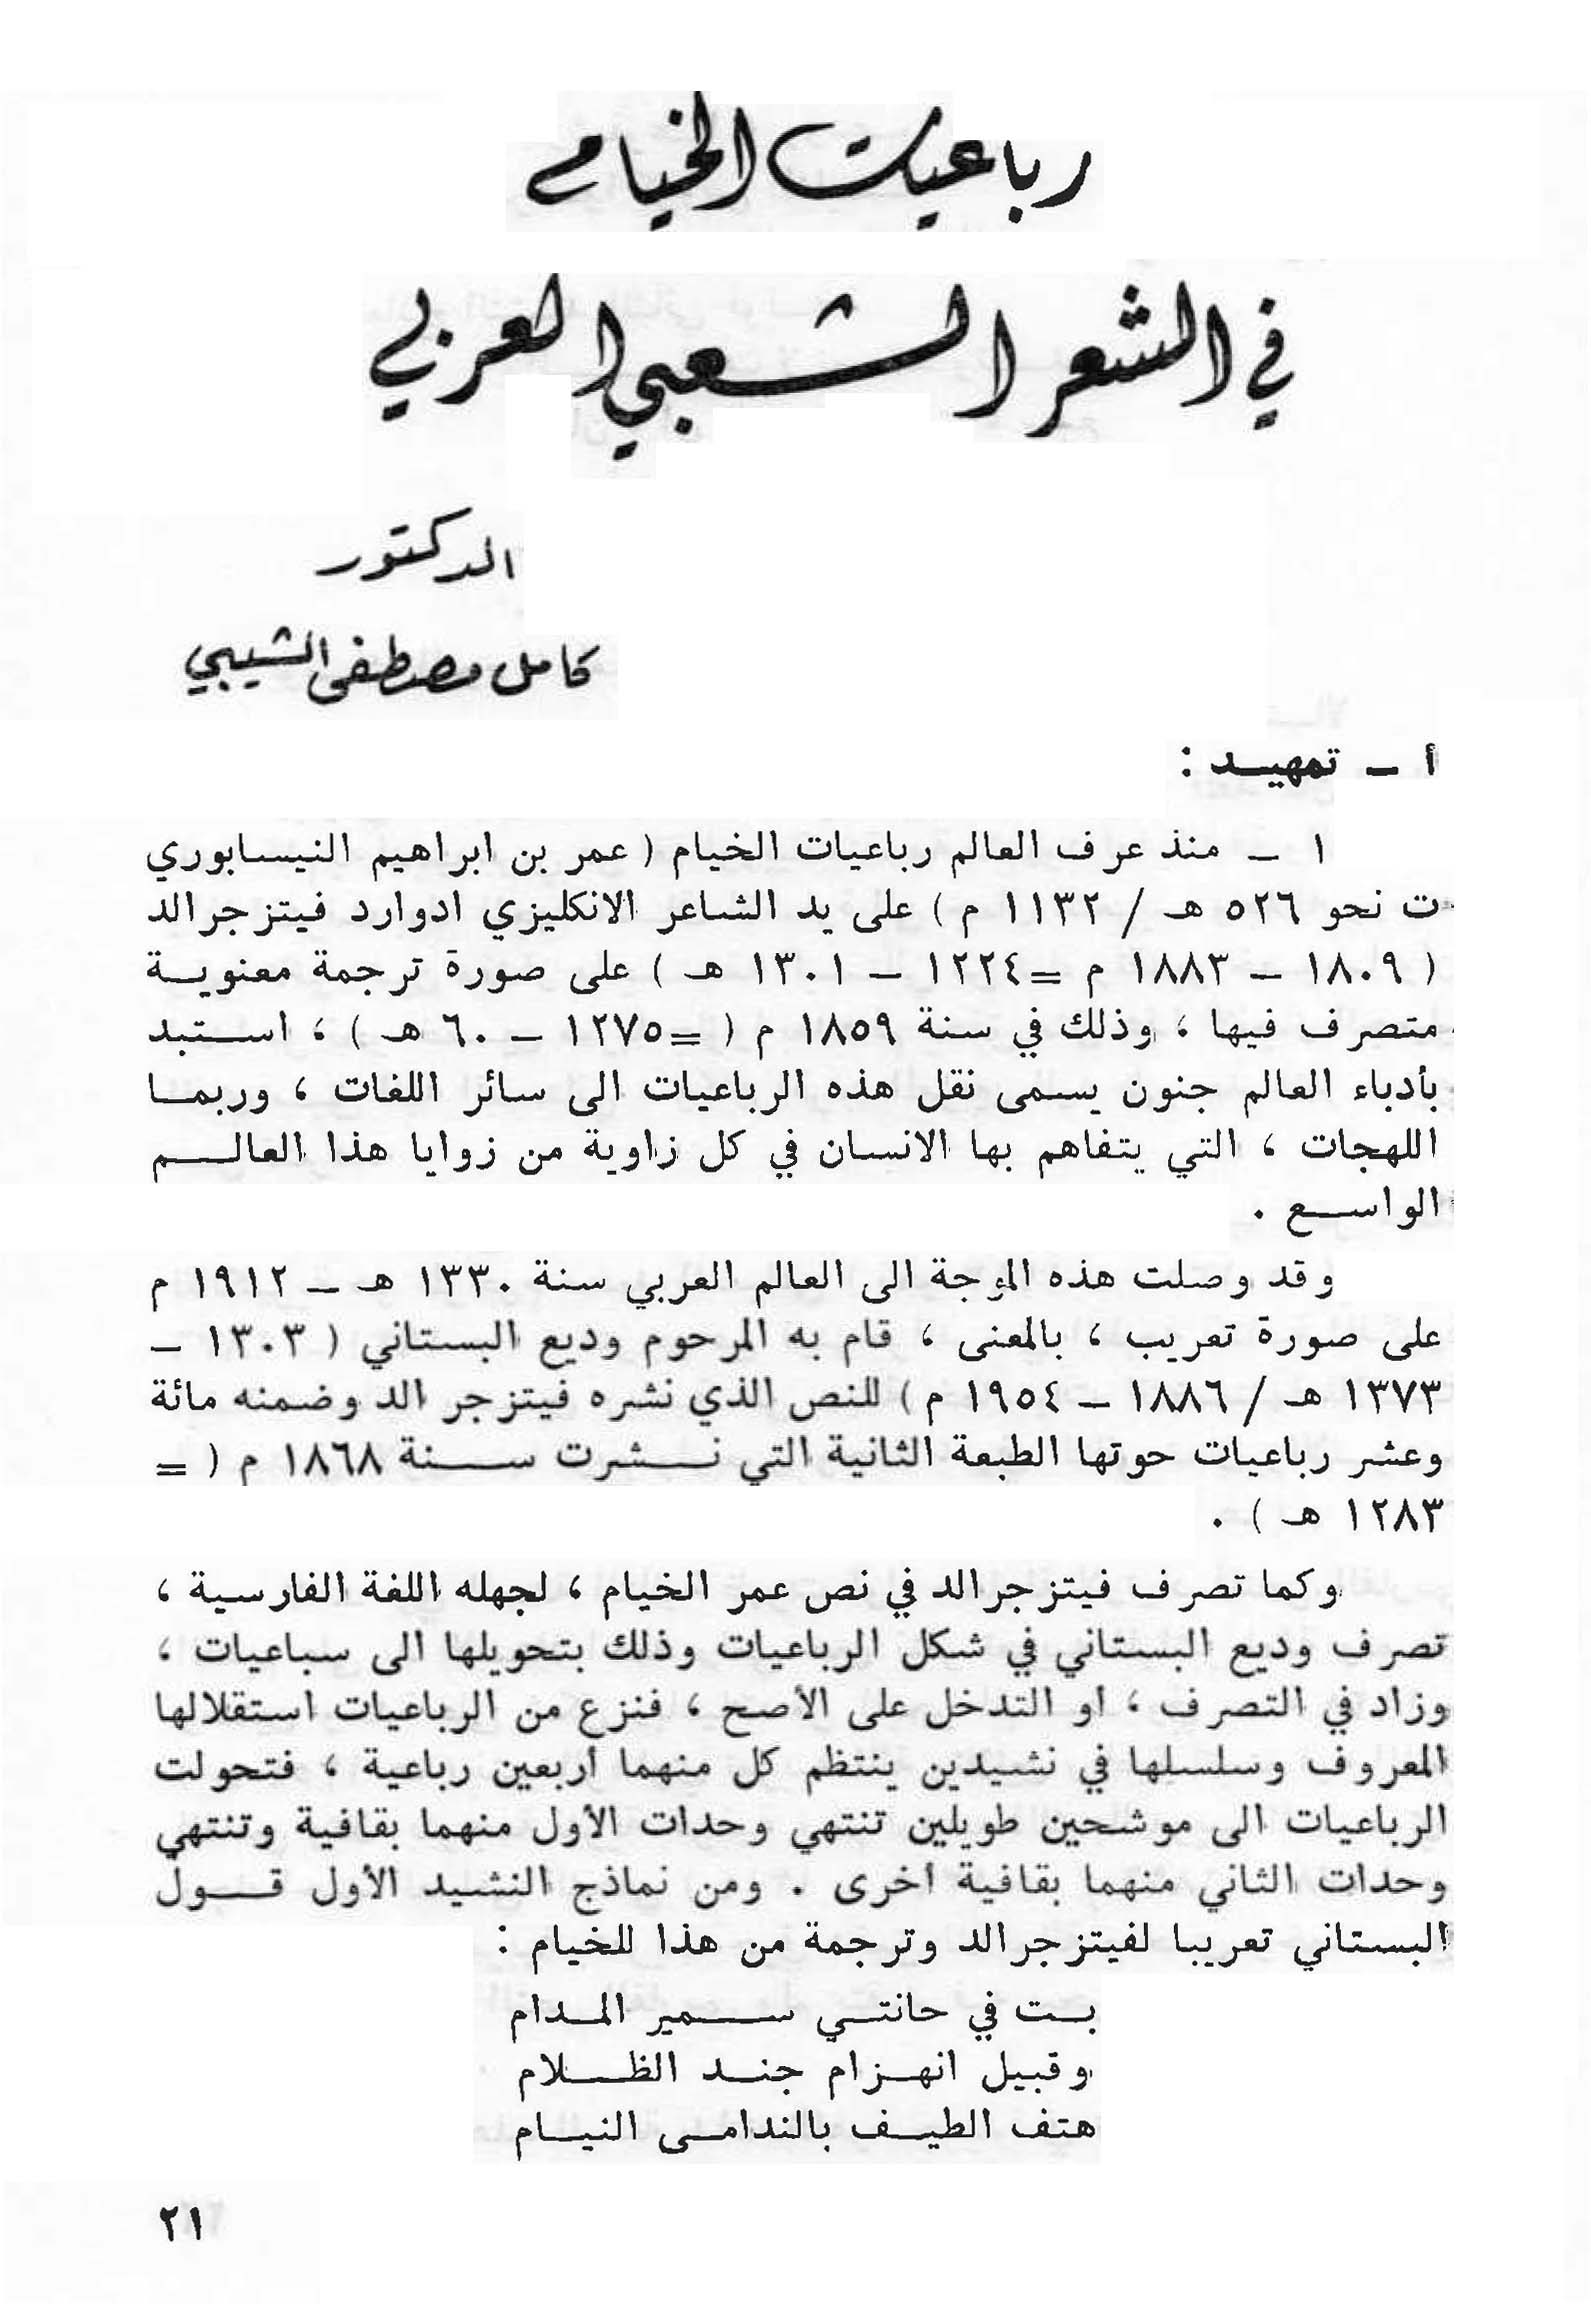 رباعيات الخيام
في الشعر الشعبي العربي
الدكتور
كامل مصطفى الشيبي
أ – تمهيد :
١ – منذ عرف العالم رباعيات الخيام ( عمر بن ابراهيم النيسابوري
ت نحو ٥٢٦ هـ / ١١٣٢ م ) على يد الشاعر الانكليزي ادوارد فيتزجرالد
( ١٨٠٩ – ١٨٨٣ م = ١٢٢٤ – ١٣٠١ هـ ) على صورة ترجمة معنوية
متصرف فيها ، وذلك في سنة ١٨٥٩ م ( = ١٢٧٥ – ٦٠ هـ ) ، استبد
بأدباء العالم جنون يسمى نقل هذه الرباعيات الى سائر اللغات ، وربما
اللهجات ، التي يتفاهم بها الانسان في كل زاوية من زوايا هذا العالم
الواسع .
وقد وصلت هذه الموجة الى العالم العربي سنة ١٣٣٠ هـ – ١٩١٢ م
على صورة تعريب ، بالمعنى ، قام به المرحوم وديع البستاني ( ١٣٠٣ –
١٣٧٣ هـ / ١٨٨٦ – ١٩٥٤ م ) للنص الذي نشره فيتزجرالد وضمنه مائة
وعشر رباعيات حوتها الطبعة الثانية التي نشرت سنة ١٨٦٨ م ( =
١٢٨٣ هـ ) .
وكما تصرف فيتزجرالد في نص عمر الخيام ، لجهله اللغة الفارسية ،
تصرف وديع البستاني في شكل الرباعيات وذلك بتحويلها الى سباعيات ،
وزاد في التصرف ، أو التدخل على الأصح ، فنزع من الرباعيات استقلالها
المعروف وسلسلها في نشيدين ينتظم كل منهما أربعين رباعية ، فتحولت
الرباعيات الى موشحين طويلين تنتهي وحدات الأول منهما بقافية وتنتهي
وحدات الثاني منهما بقافية أخرى . ومن نماذج النشيد الأول قول
البستاني تعريبا لفيتزجرالد وترجمة من هذا للخيام :
بت في حانتي سمير المدام
وقبيل انهزام جند الظلام
هتف الطيف بالندامى النيام
٢١